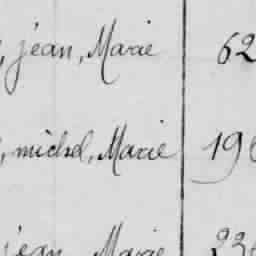 , jéan, Marie 62
, michel, Marie 19
jean, Marie 23